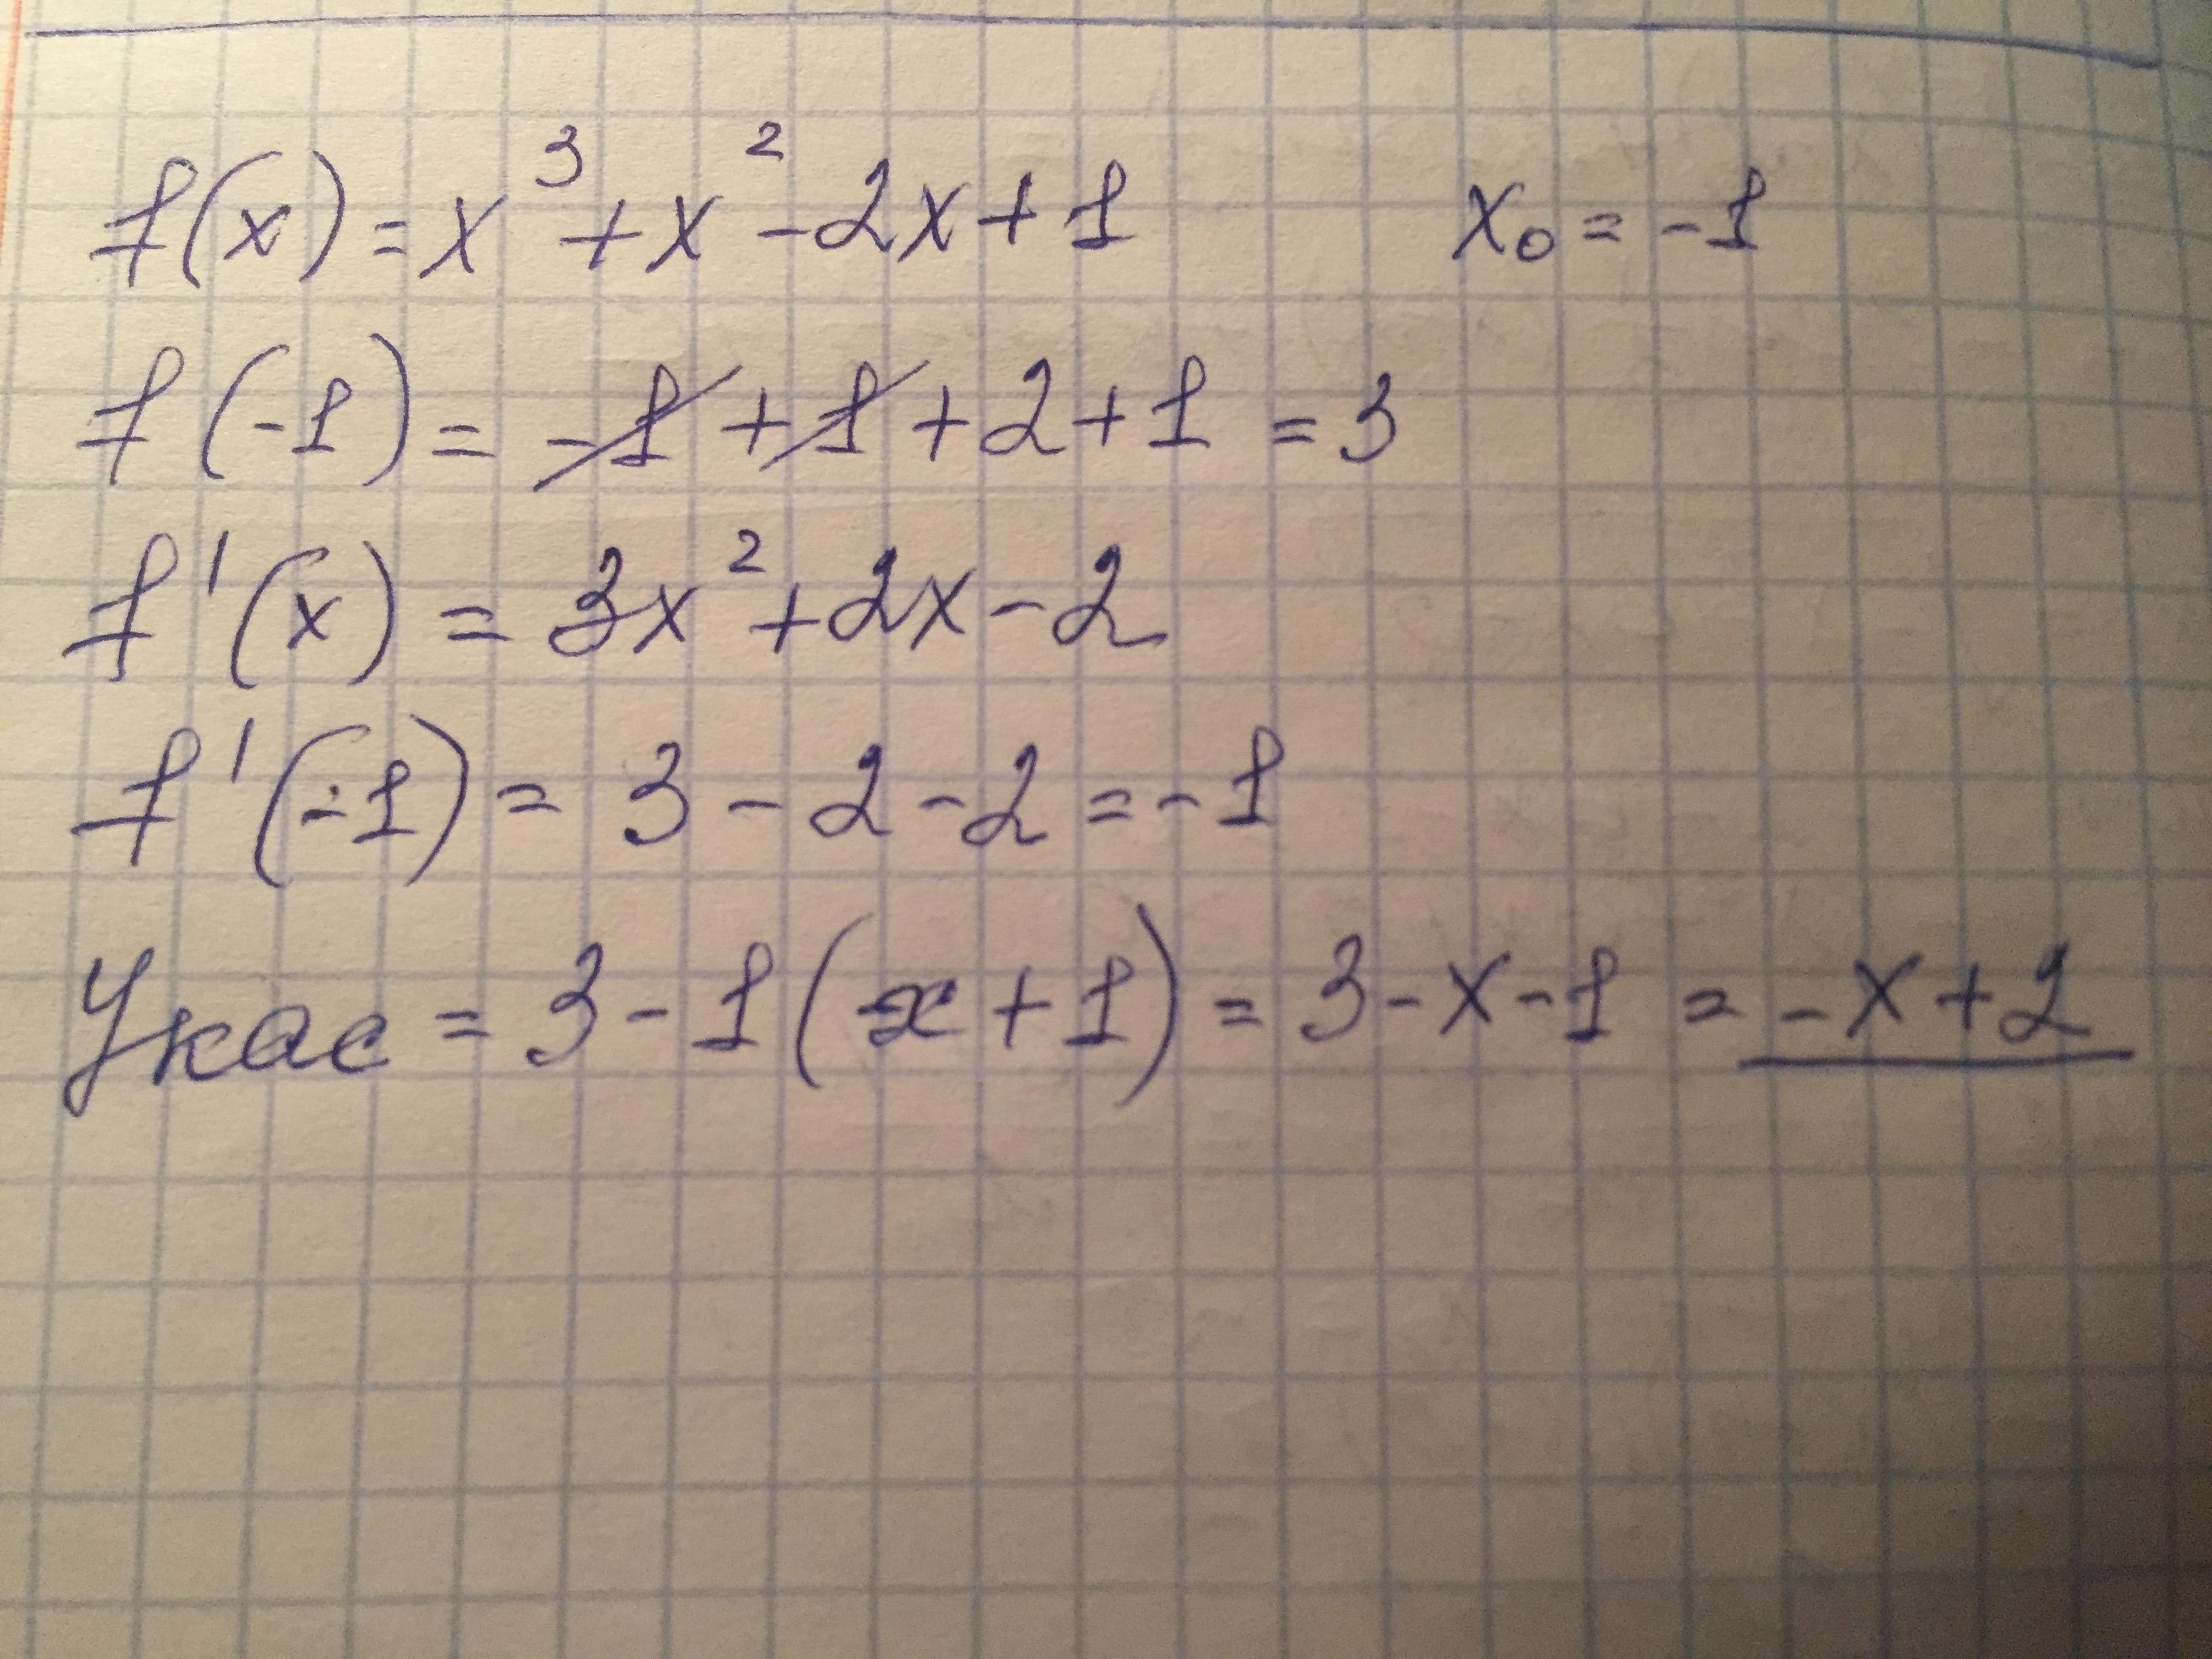 f(x) = x³ + x² - 2x + 1 x₀ = -1
f(-1) = -1 + 1 + 2 + 1 = 3
f'(x) = 3x² + 2x - 2
f'(-1) = 3 - 2 - 2 = -1
Yкас = 3 - 1(x + 1) = 3 - x - 1 = -x + 2